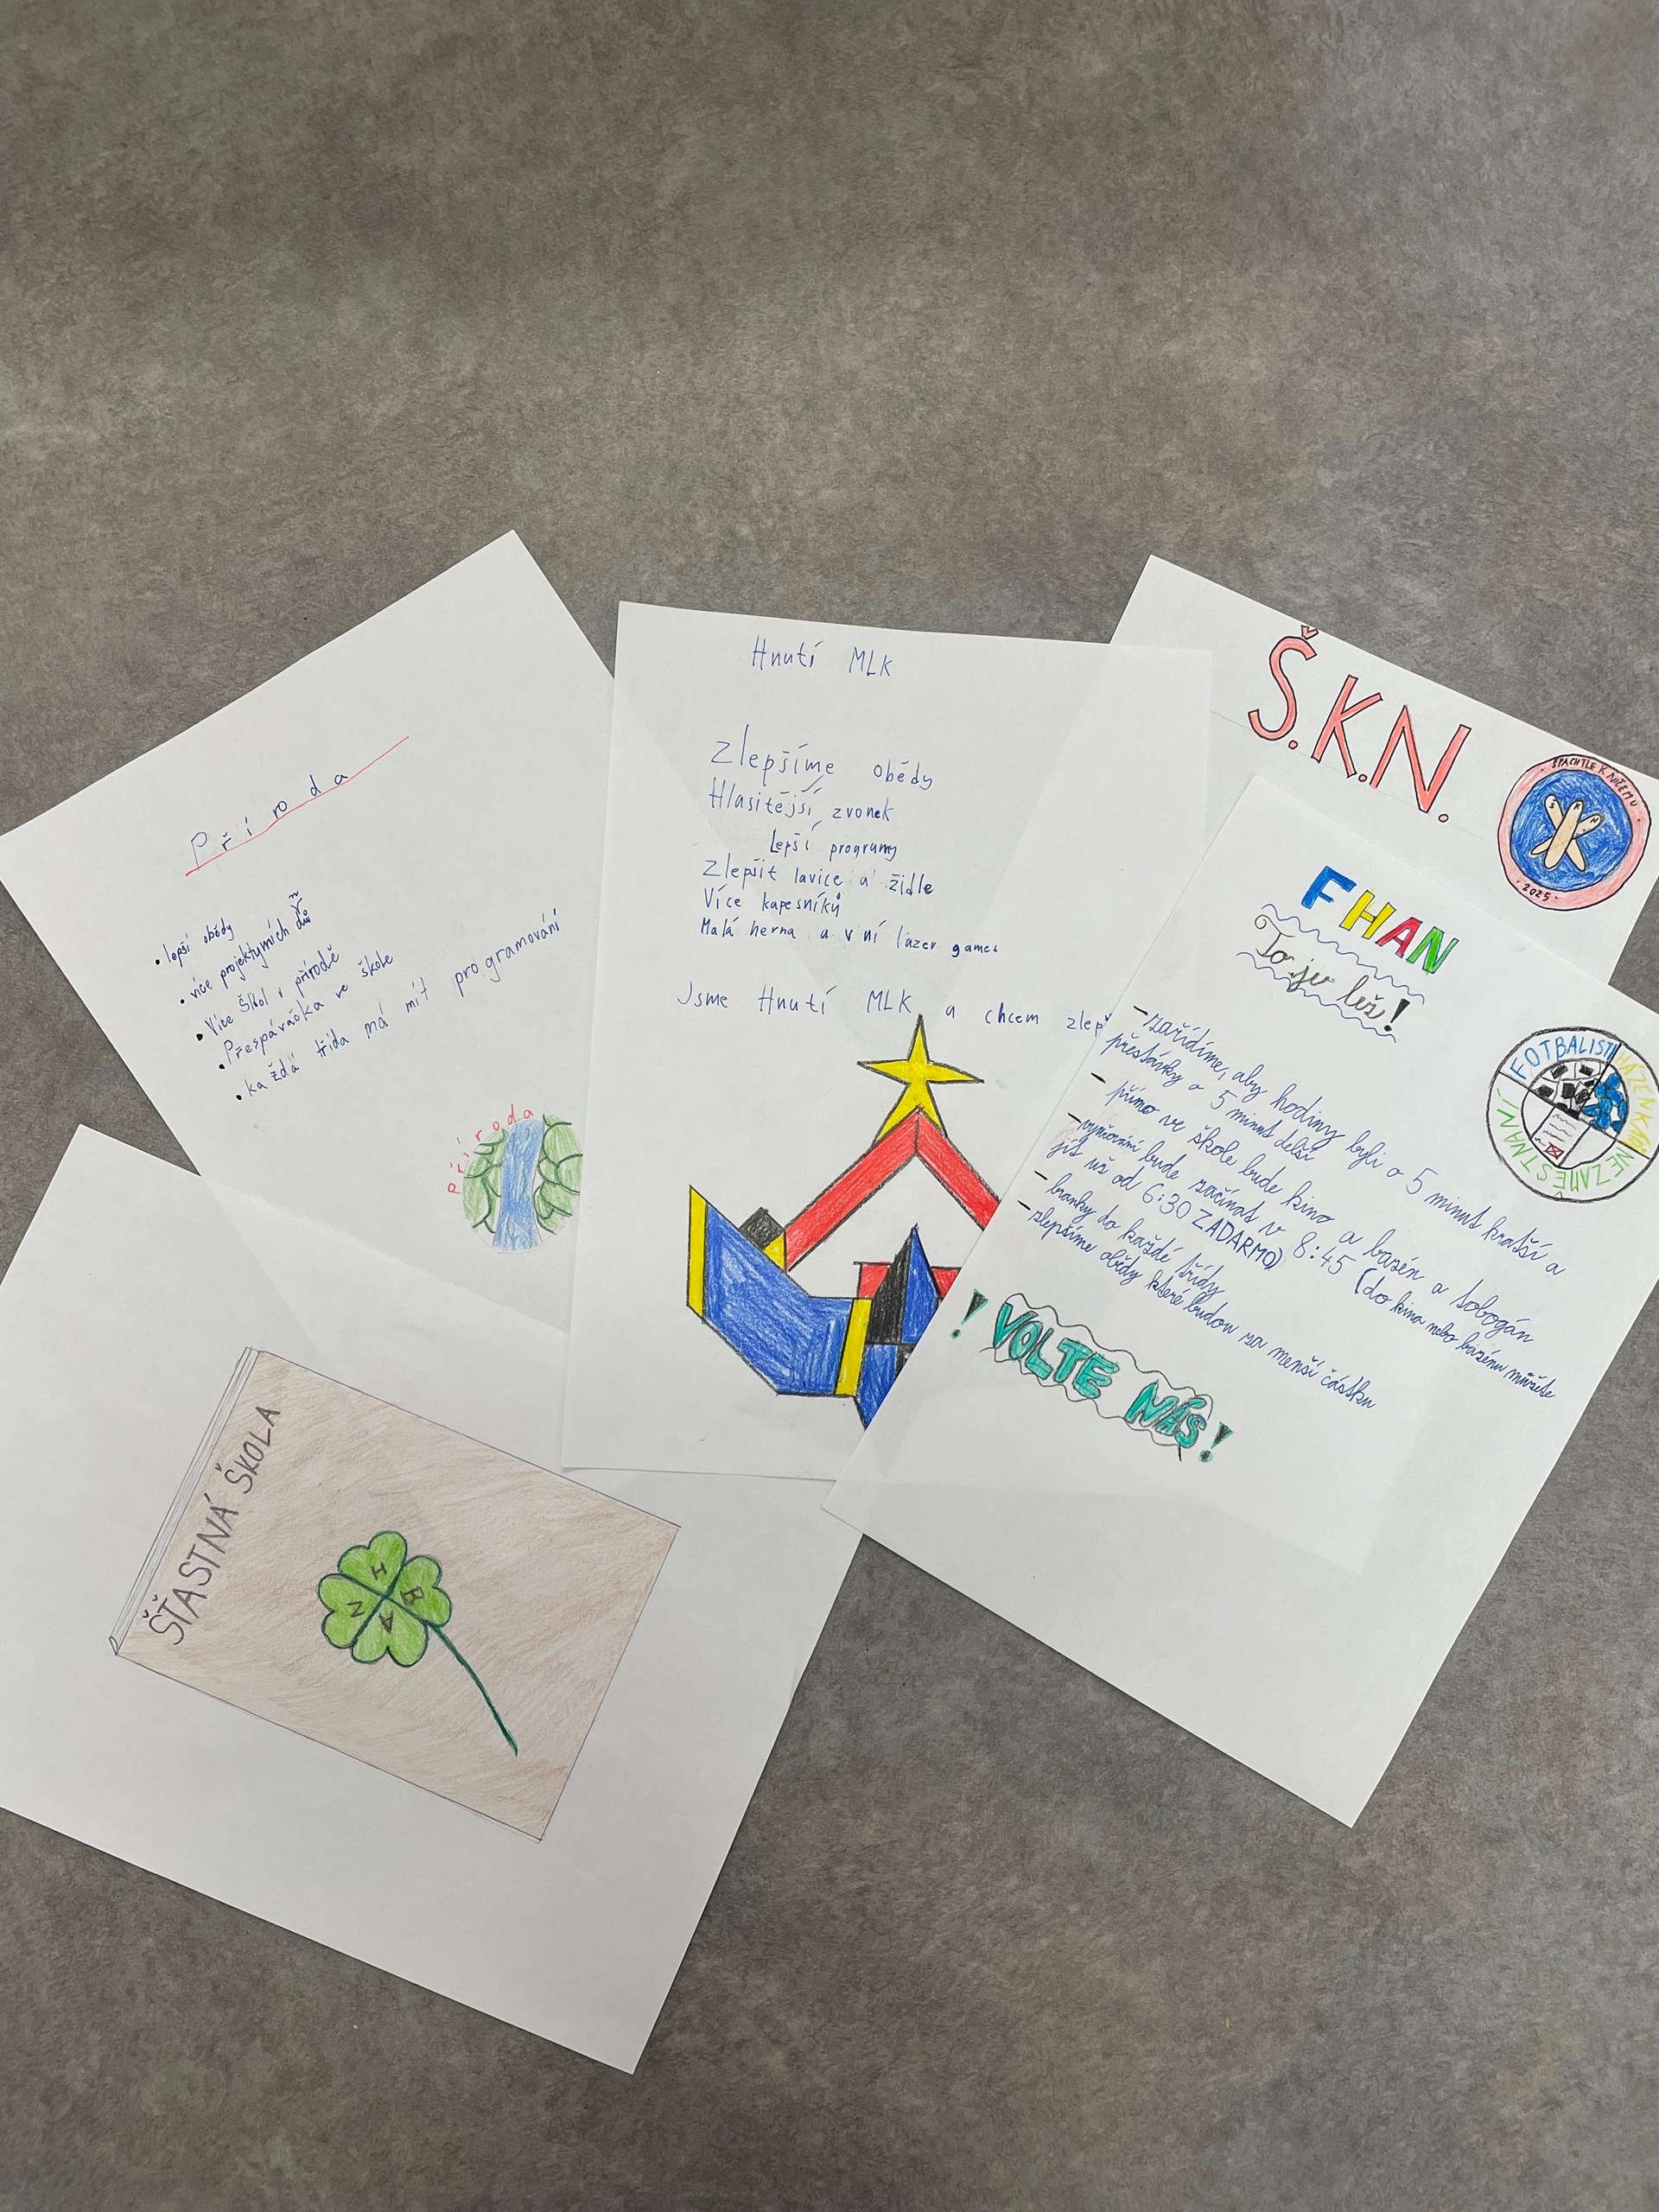 Příroda
• lepší obědy
• více projektyvních dňů
• Více Škol v přírodě
• Přespávačka ve škole
• každá třída má mít programování
Příroda
Hnutí MLK
Zlepšíme obědy
Hlasitější zvonek
Lepší programy
Zlepšit lavice a židle
Více kapesníků
Malá herna a v ní lazer games
Jsme Hnutí MLK a chcem zlepš
Š.K.N.
ŠPACHTLE K NIČEMU
Š K N
• 2025 •
FHAN
To je lež!
FOTBALISTI HÁZENKÁŘI NEZAMĚSTNANÍ
- zařídíme, aby hodiny byli o 5 minut kratší a
přestávky o 5 minut delší
- přímo ve škole bude kino a bazén a tobogán
- vyučování bude začínat v 8:45 (do kina nebo bazénu můžete
jít už od 6:30 ZADARMO)
- branky do každé třídy
- zlepšíme obědy které budou za menší částku
! VOLTE NÁS!
ŠŤASTNÁ ŠKOLA
H B A N